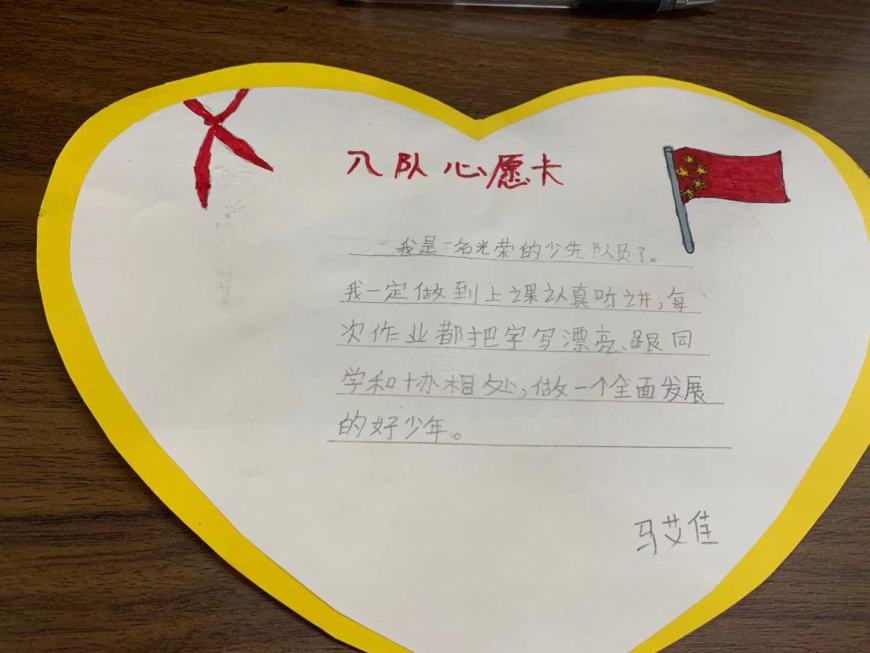 入队心愿卡
我是一名光荣的少先队员了。
我一定做到上课认真听讲,每
次作业都把字写漂亮、跟同
学和协相处,做一个全面发展
的好少年。
马艾佳